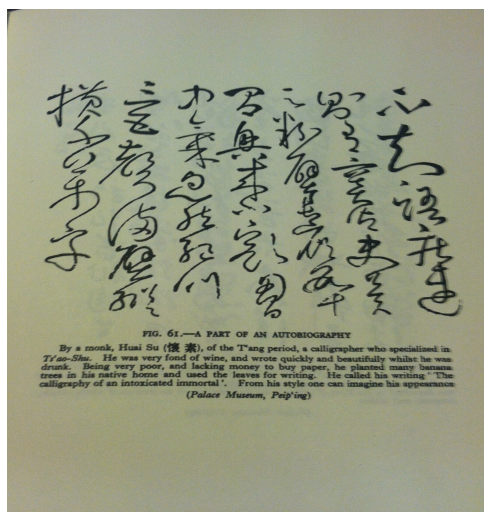 不知語疾迅
則有竇御史冀
云粉壁長廊數十
間興來小豁胸
中氣忽然絕叫
三五聲滿壁縱
橫千萬字
FIG. 61.—A PART OF AN AUTOBIOGRAPHY
By a monk, Huai Su (懷素), of the T'ang period, a calligrapher who specialized in
Ts'ao-Shu. He was very fond of wine, and wrote quickly and beautifully whilst he was
drunk. Being very poor, and lacking money to buy paper, he planted many banana
trees in his native home and used the leaves for writing. He called his writing ' The
calligraphy of an intoxicated immortal '. From his style one can imagine his appearance
(Palace Museum, Peip'ing)